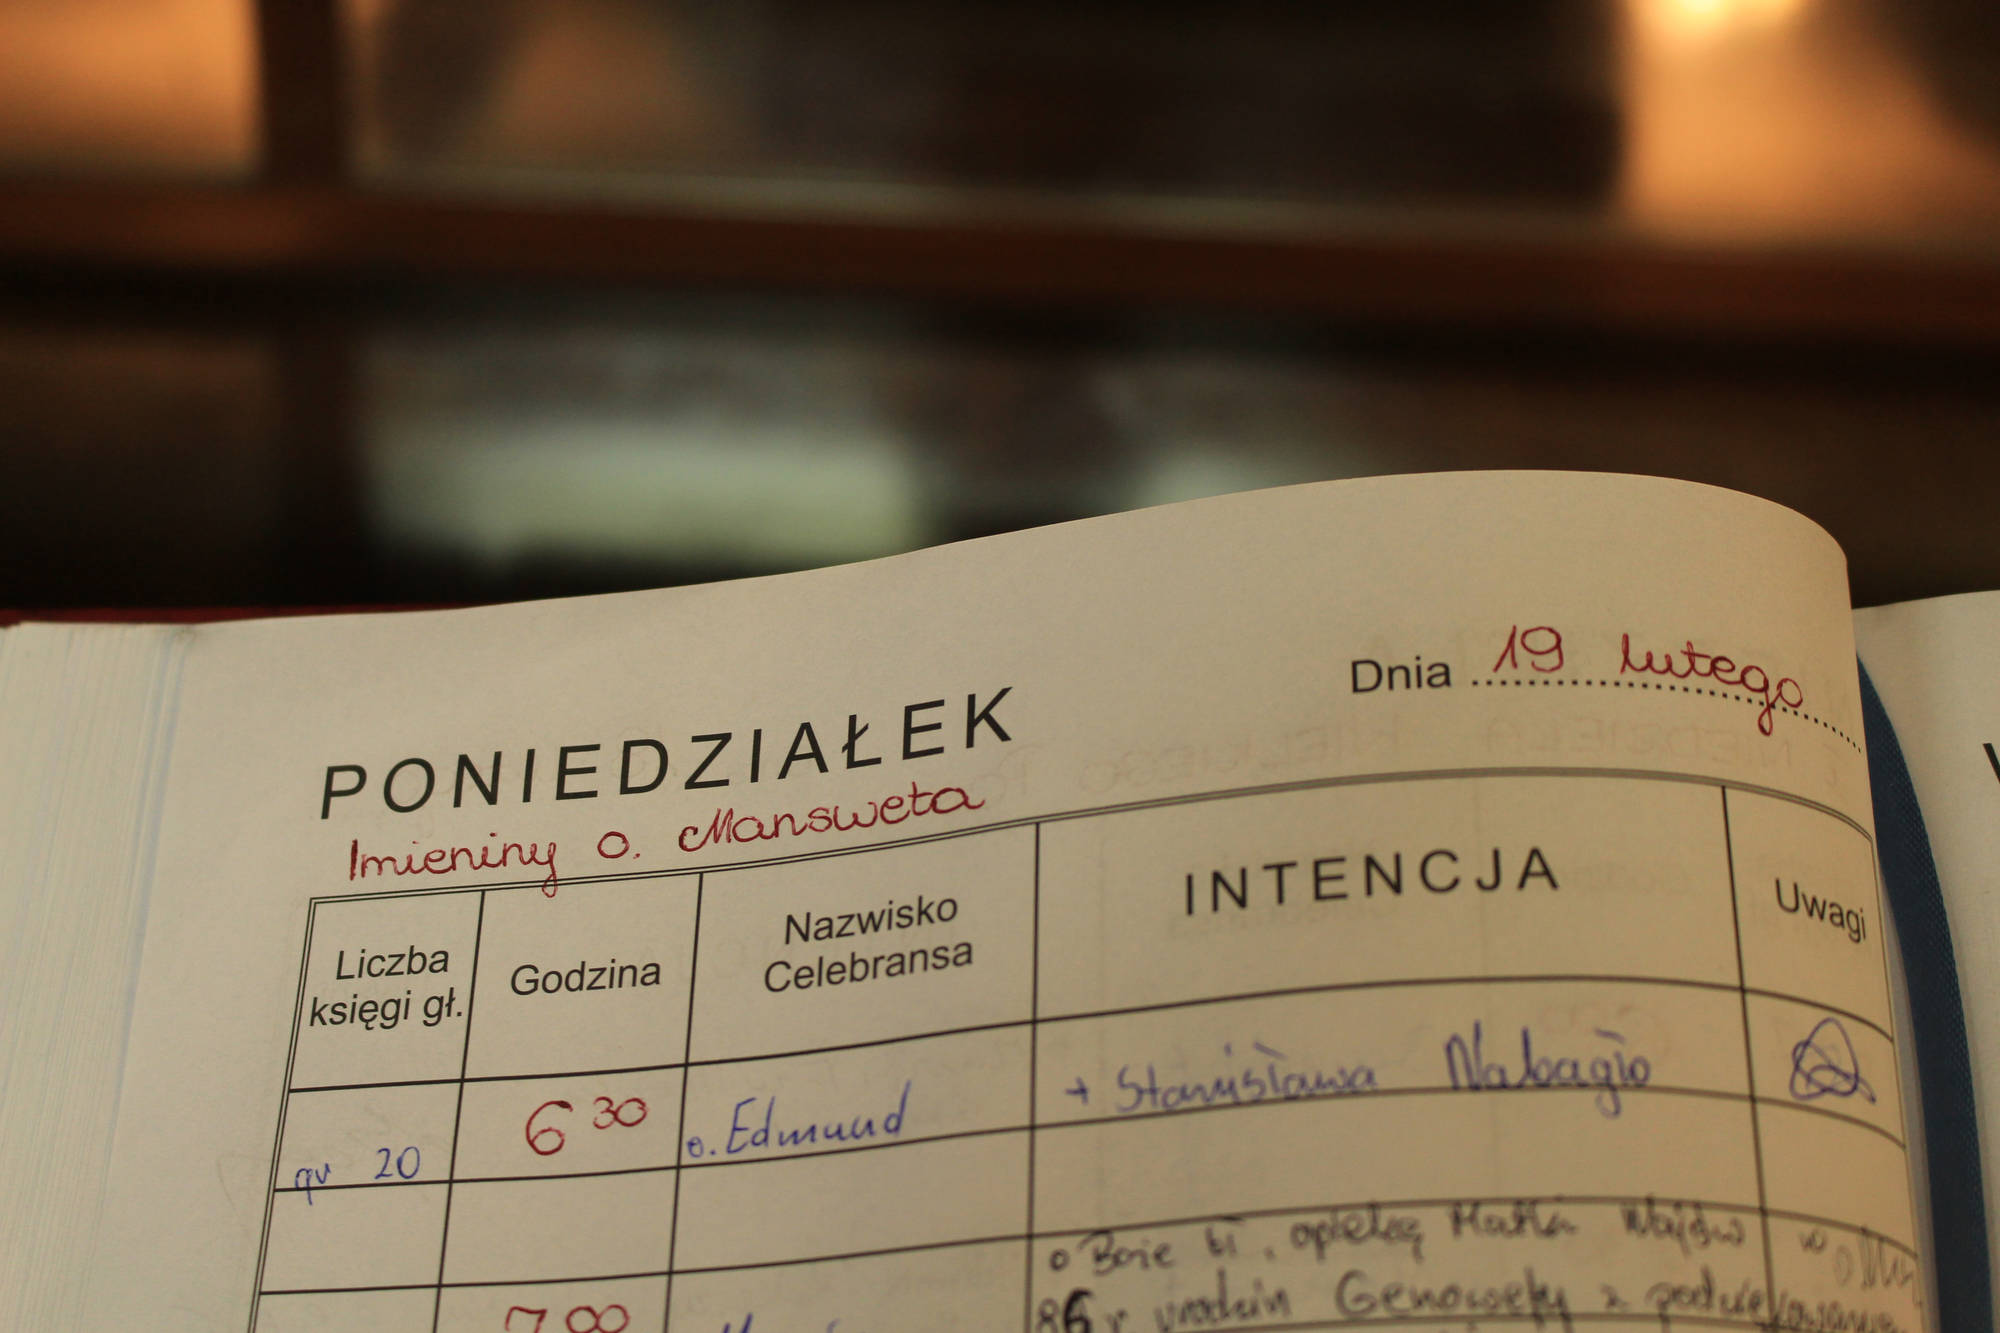 PONIEDZIAŁEK
Dnia 19 lutego
Imieniny o. Mansweta
Liczba księgi gł.
Godzina
Nazwisko Celebransa
INTENCJA
Uwagi
gr 20
6 30
o. Edmund
+ Stanisława Nabagło
o Boże bł. opiekę Matki
7 00
86 r urodzin Genowefy z